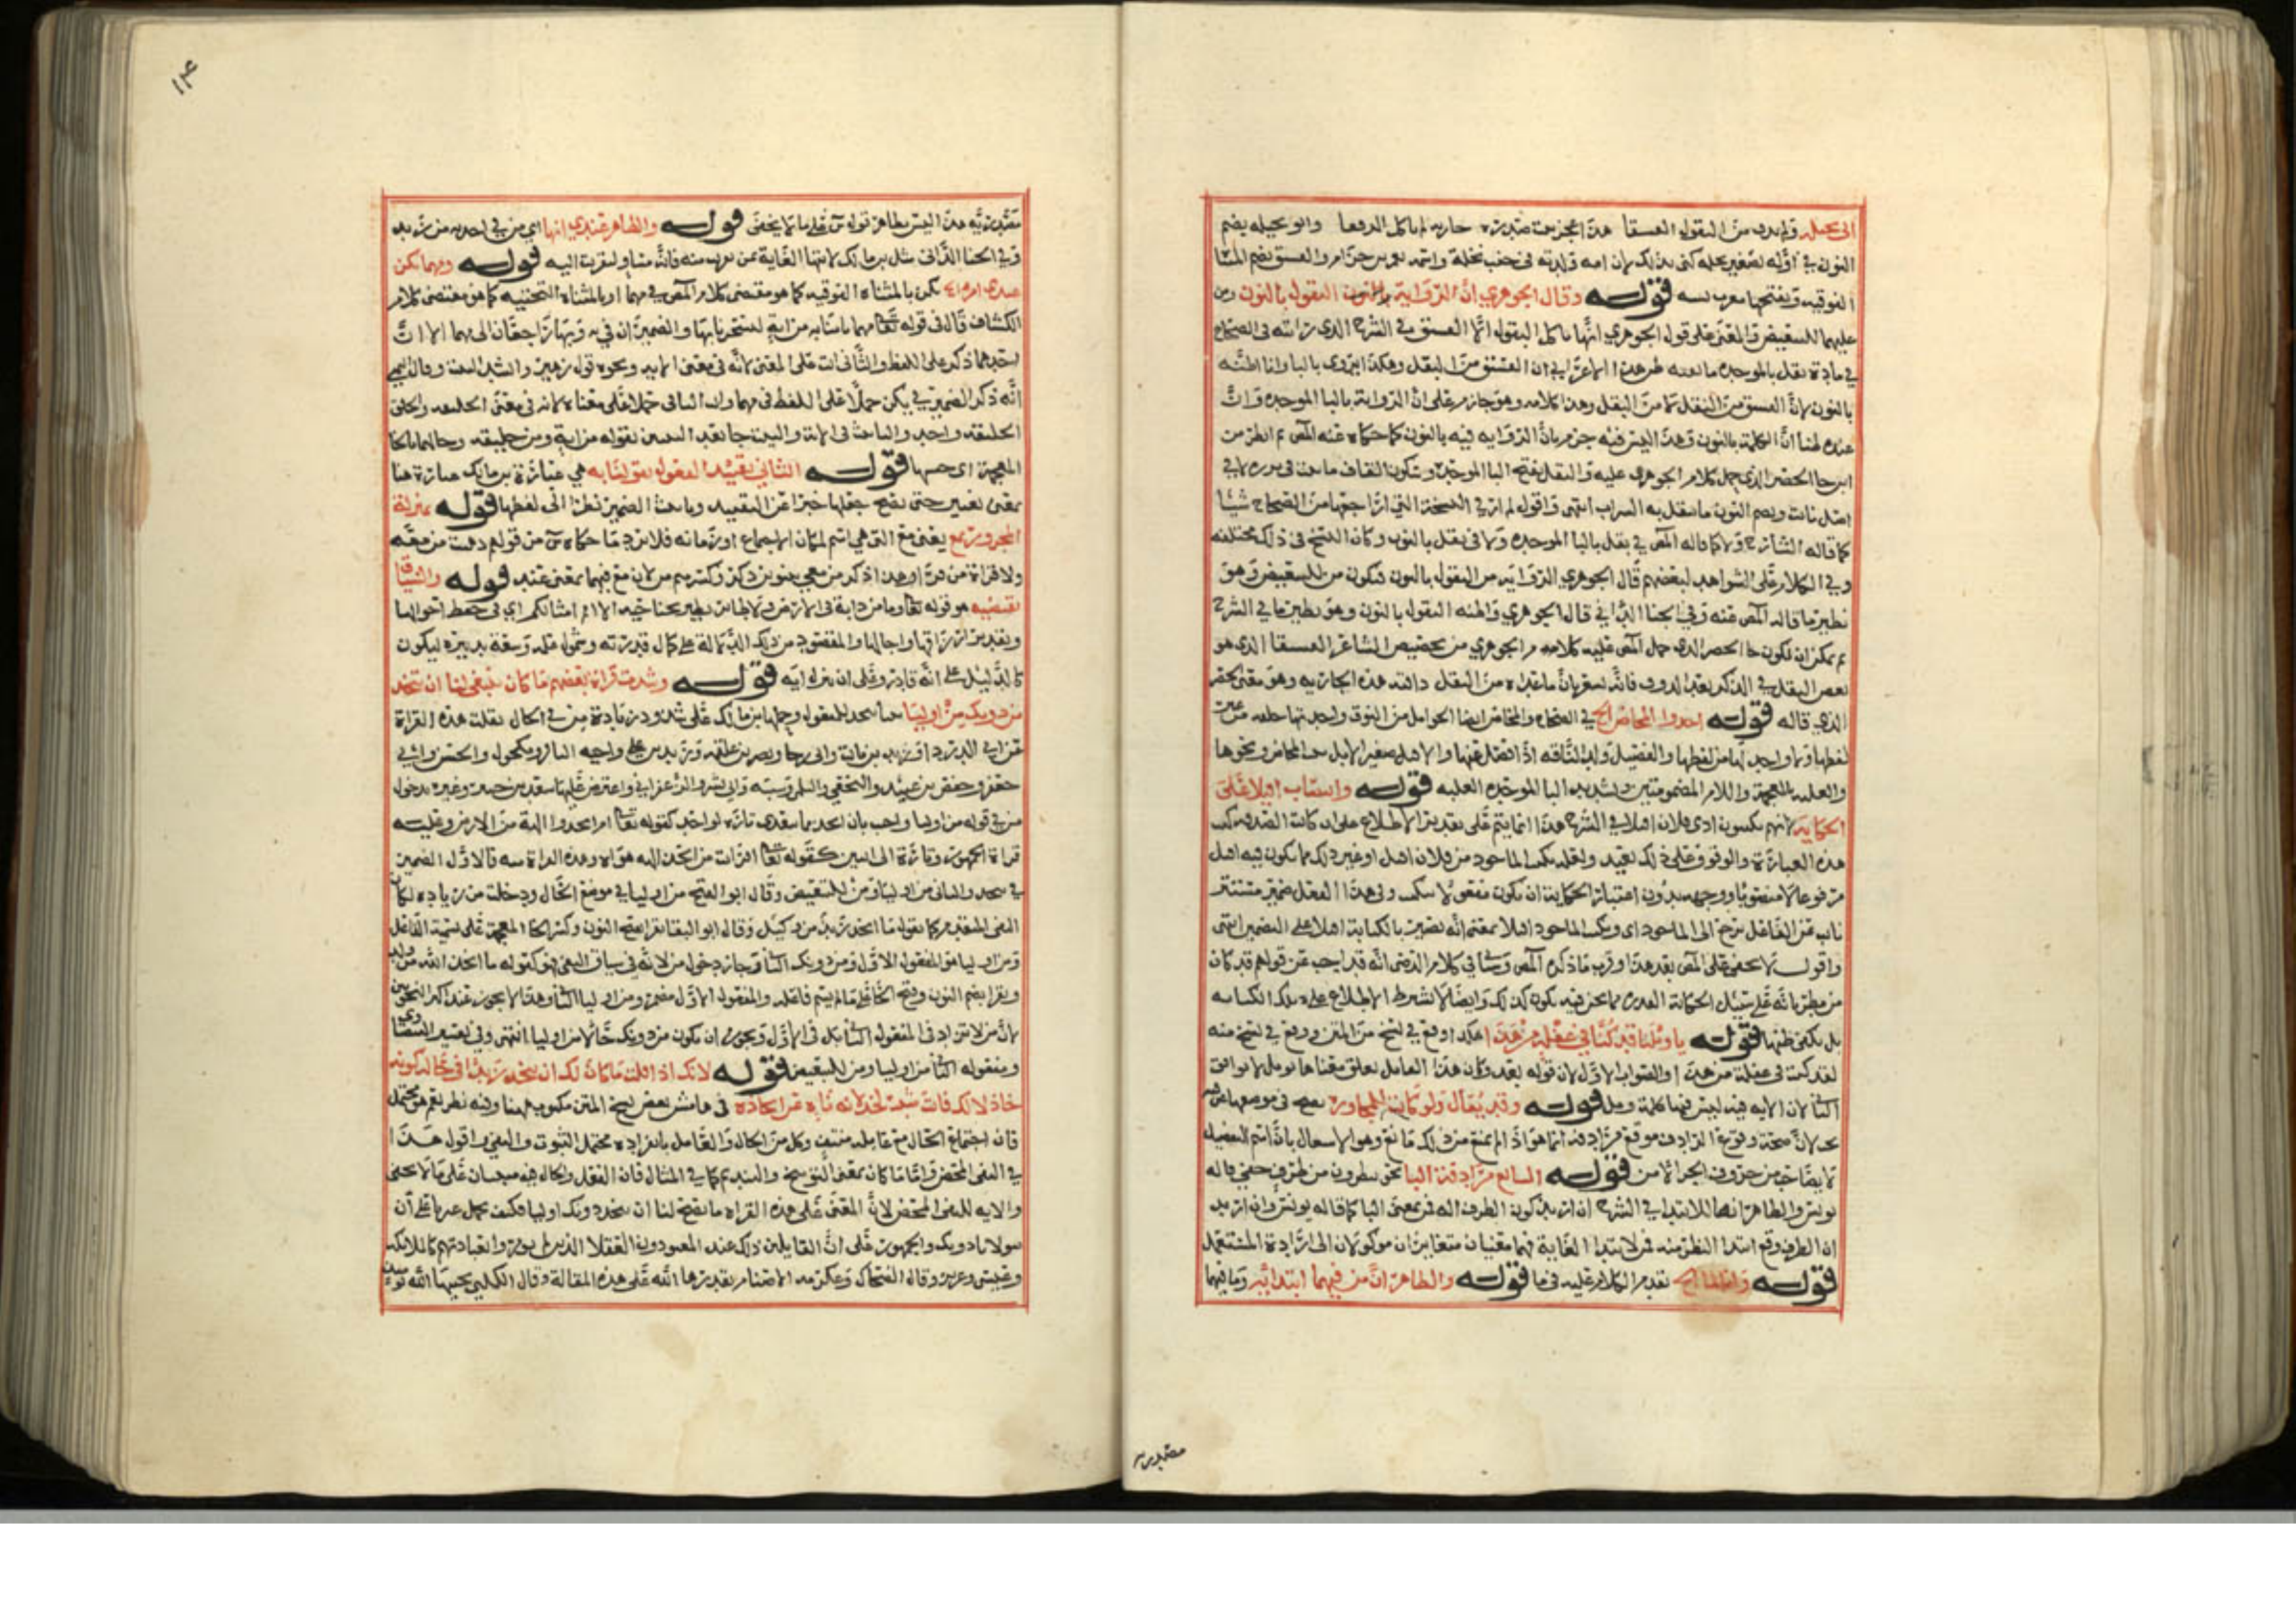 الى نخيله ولم تذق من البقول الفستقا هذا عجز بيت صدره جارية لم تاكل المرققا وابو نخيله بضم
النون في اوله تصغير نخله كنى بذلك لان امه ولدته في جنب نخلة واسمه يعمر بن حزام والفستق بضم التا
الفوقيه وبفتحها معرب بسته قوله وقال الجوهري ان الرواية النقول بالنون ومن
عليهما للتبعيض والمعنى على قول الجوهري انها تاكل البقول الا الفستق في الشرح الذى رايته فى الصحاح
في مادة بقل بالموحدة ما نصه ظن هذا الاعرابي ان الفستق من البقل وهكذا يروى بالبا وانا اظنه
بالنون لان الفستق من النقل لا من البقل وهذا كلامه وهو جازم على ان الرواية بالبا الموحده وان
عنده ظنا ان الكلمة بالنون وهذا ليس فيه جزم بان الرواية فيه بالنون كما حكاه عنه المص ثم انظر من
اين جا الحصر الذى حمل كلام الجوهري عليه والبقل بفتح البا الموحدة وسكون القاف ما نبت فى بزره لا في
اصل نابت وبضم النون ما ينتقل به الشراب انتهى واقول لم ار في النسخة التي اراجعها من الصحاح شيئا
كما قاله الشارح ولا كما قاله المص في بقل بالبا الموحده ولا فى نقل بالنون وكان النسخ فى ذلك مختلفه
وفي الكلام على الشواهد لبعضهم قال الجوهري الرواية من النقول بالنون فتكون من للتبعيض وهو
نظير ما قاله المص عنه وفي الجنا الداني قال الجوهري واظنه النقول بالنون وهو نظير ما في الشرح
ثم يمكن ان تكون جا الحصر الذى حمل المص عليه كلام الجوهري من تخصيص الشاعر الفستقا الذي هو
بعض البقل في الذكر بعد الذوق فانه يشعر بان ما عداه من البقل ذاقته هذه الجارية وهو معنى الحصر
الذي قاله قوله اخذوا المخاض الخ في الصحاح والمخاض ايضا الحوامل من النوق واحدتها خلفه من غير
لفظها ولا واحد لها من لفظها والفصيل ولد الناقه اذا انفصل عنها والافيل صغير الابل بنت المخاض ونحوها
والغلبه بالمعجمة واللام المضمومتين وتشديد البا الموحده الغلبه قوله وانتصاب افيلا على
الحكاية لانهم يكتبون ادى فلان افيلا في الشرح هذا انما يتم على تقدير الاطلاع على ان كاتب الصدقه كتب
هذه العبارة والوقوف على ذلك بعيد ولعله يكتب الماخوذ من فلان افيل او غير ذلك مما يكون فيه افيل
مرفوعا لا منصوبا ووجهه بدون اعتبار الحكاية ان يكون مفعولا ليكتب وفى هذا الفعل ضمير مستتر
ناب عن الفاعل يرجع الى الماخوذ اى ويكتب الماخوذ افيلا بمعنى انه يصير بالكتابة افيلا على التضمين انتهى
واقول لا يخفى على المص بعد هذا وقرب ما ذكره المص وسياتي في كلام الرضى انه قد يجيب عن قولهم قد كان
من مطر بانه على سبيل الحكاية الفدرى مما نحن فيه يكون كذلك وايضا لا نشترط الاطلاع على تلك الكتابه
بل يكفى ظنها قوله يا ويلنا قد كنا في غفلة من هذا هكذا وقع في نسخ من المتن ووقع في نسخ منه
لقد كنت فى غفلة من هذا والصواب الاول لان قوله بعد وكان هذا القايل يعلق معناها بويل لا يوافق
الثا لان الايه فيه ليس فيها كلمة ويل قوله وقد يقال ولو كانت للمجاوزة لصح فى موضعها عن فيه
بحث لان صحة وقوع المرادف موقع مرادفه انما هو اذا لم يمنع من ذلك مانع وهو الاستعمال بان اسم التفضيل
لا يصاحب من حروف الجر الا من قوله السابع مرادفة البا نحو ينظرون من طرف خفي قاله
يونس والظاهر انها للابتدا في الشرح ان اريد كون الطرف اله فمن بمعنى البا كما قاله يونس وان اريد
ان الطرف وقع ابتدا النظر منه فمن لابتدا الغاية فهما معنيان متغايران موكولان الى ارادة المستعمل
قوله وانا لما الخ تقدم الكلام عليه فى ما قوله والظاهر ان من فيهما ابتدائية وما فيهما
مصدرية
١٤
مصدرية هذا ليس بظاهر قوله على ما لا يخفى قوله والظاهر عندي انها اي من في اخذته من زيد
وفي الجنا الدانى مثل ابن مالك لانتها الغاية بمن بقرب منه فانه مساو لقربت اليه قوله ومهما تكن
عند امرئ تكن بالمثناه الفوقيه كما هو مقتضى كلام المص في مهما او بالمثناه التحتيه كما هو مقتضى كلام
الكشاف قال فى قوله تعالى مهما تاتنا به من اية لتسحرنا بها والضميران في به وبها راجعان الى مهما الا ان
احدهما ذكر على اللفظ والثانى انث على المعنى لانه فى معنى الايه ونحوه قول زهير وانشد البيت وقال اليمنى
انه ذكر الضمير في يكن حملا على اللفظ فى مهما وانث الثانى حملا على معناه لانه فى معنى الخليقه والخلق
الخليقه واحد والتانيث فى الايه والبيت جا بعد التبيين بقوله من اية ومن خليقه وخالها بالخا
المعجمة اى حسبها قوله الثاني تقييد المفعول بقولنا به هي عبارة ابن مالك عبارة هنا
بمعنى تعبير حتى يصح جعلها خبرا عن التقييد وتانيث الضمير نظرا الى لفظها قوله بمنزلة
المجرور بمع يعنى مع التى هي اسم لمكان الاجتماع او زمانه فلا يرد ما حكاه س من قولهم ذهبت من معه
ولا قراة من قرا هذا ذكر من معي بتنوين ذكر وكسر ميم من لان مع فيهما بمعنى عند قوله والسياق
يقتضيه هو قوله تعالى وما من دابة فى الارض ولا طائر يطير بجناحيه الا امم امثالكم اي فى حفظ احوالها
وتقدير ارزاقها واجالها والمقصود من ذلك الدلالة على كمال قدرته وشمول علمه وسعة تدبيره ليكون
كالدليل على انه قادر على ان ينزل اية قوله وشدت قراة بعضهم ما كان ينبغى لنا ان نتخذ
من دونك من اوليا ببنا نتخذ للمفعول وحملها ابن مالك على شذوذ زيادة من في الحال نقلت هذه القراة
عن ابى الدردا وزيد بن ثابت وابى رجا ونصر بن علقمه وزيد بن على واخيه الباقر ومكحول والحسن وابي
جعفر وحفص بن عبيد والنخعي والسلمى وشيبة وابى بشر والزعفراني واعترض عليها سعيد بن جبير وغيره بدخول
من في قوله من اوليا واجيب بان اتخذ مما يتعدى تارة لواحد كقوله تعالى ام اتخذوا الهة من الارض وعليه
قراة الجمهور وتارة الى اثنين كقوله تعالى افرايت من اتخذ الهه هواه وهذه القراة منه فالاول الضمير
في نتخذ والثانى من اوليا ومن للتبعيض وقال ابو الفتح من اوليا في موضع الحال ودخلت من زياده لمكان
النفى المتقدم كما تقول ما اتخذت زيدا من وكيل وقال ابو البقا يقرا بفتح النون وكسر الخا المعجمة على تسمية الفاعل
ومن اوليا هو المفعول الاول ومن دونك الثا وجاز دخول من لانه فى سياق النفى فهو كقوله ما اتخذ الله من ولد
ويقرا بضم النون وفتح الخا على ما لم يسم فاعله والمفعول الاول مضمر ومن اوليا الثا وهذا لا يجوز عند اكثر النحويين
لان من لا تزاد فى المفعول الثا بل فى الاول ويجوز ان يكون من دونك حالا من اوليا انتهى وفى تفسير البيضاوي
ومفعوله الثا من اوليا ومن للتبعيض قوله لانك اذا قلت ما كان لك ان تتخذ زيدا في حالة كونه
خاذلا لك فانت مثبت لخذلانه ناه عن اتخاذه فى هامش بعض نسخ المتن مكتوب هنا وفيه نظر نعم هو محتمل
فان اجتماع الحال مع عامله منتف وكل من الحال والعامل بانفراده محتمل الثبوت والنفى واقول هذا
في النفى المحض واما ما كان بمعنى التوبيخ والتنديم كما في المثال فان الفعل والحال فيه مثبتان على ما لا يخفى
والايه للنفى المحض لان المعنى على هذه القراه ما يصح لنا ان نتخذ دونك اوليا فكيف نحمل غيرنا على ان
يتولانا دونك والجمهور على ان القايلين ذلك عند المعبودون العقلا الذين لم يومروا بعبادتهم كالملائكه
وعيسى وعزير وقال الضحاك وعكرمه الاصنام يقدرها الله على هذه المقالة وقال الكلبي يحييها الله يومئذ